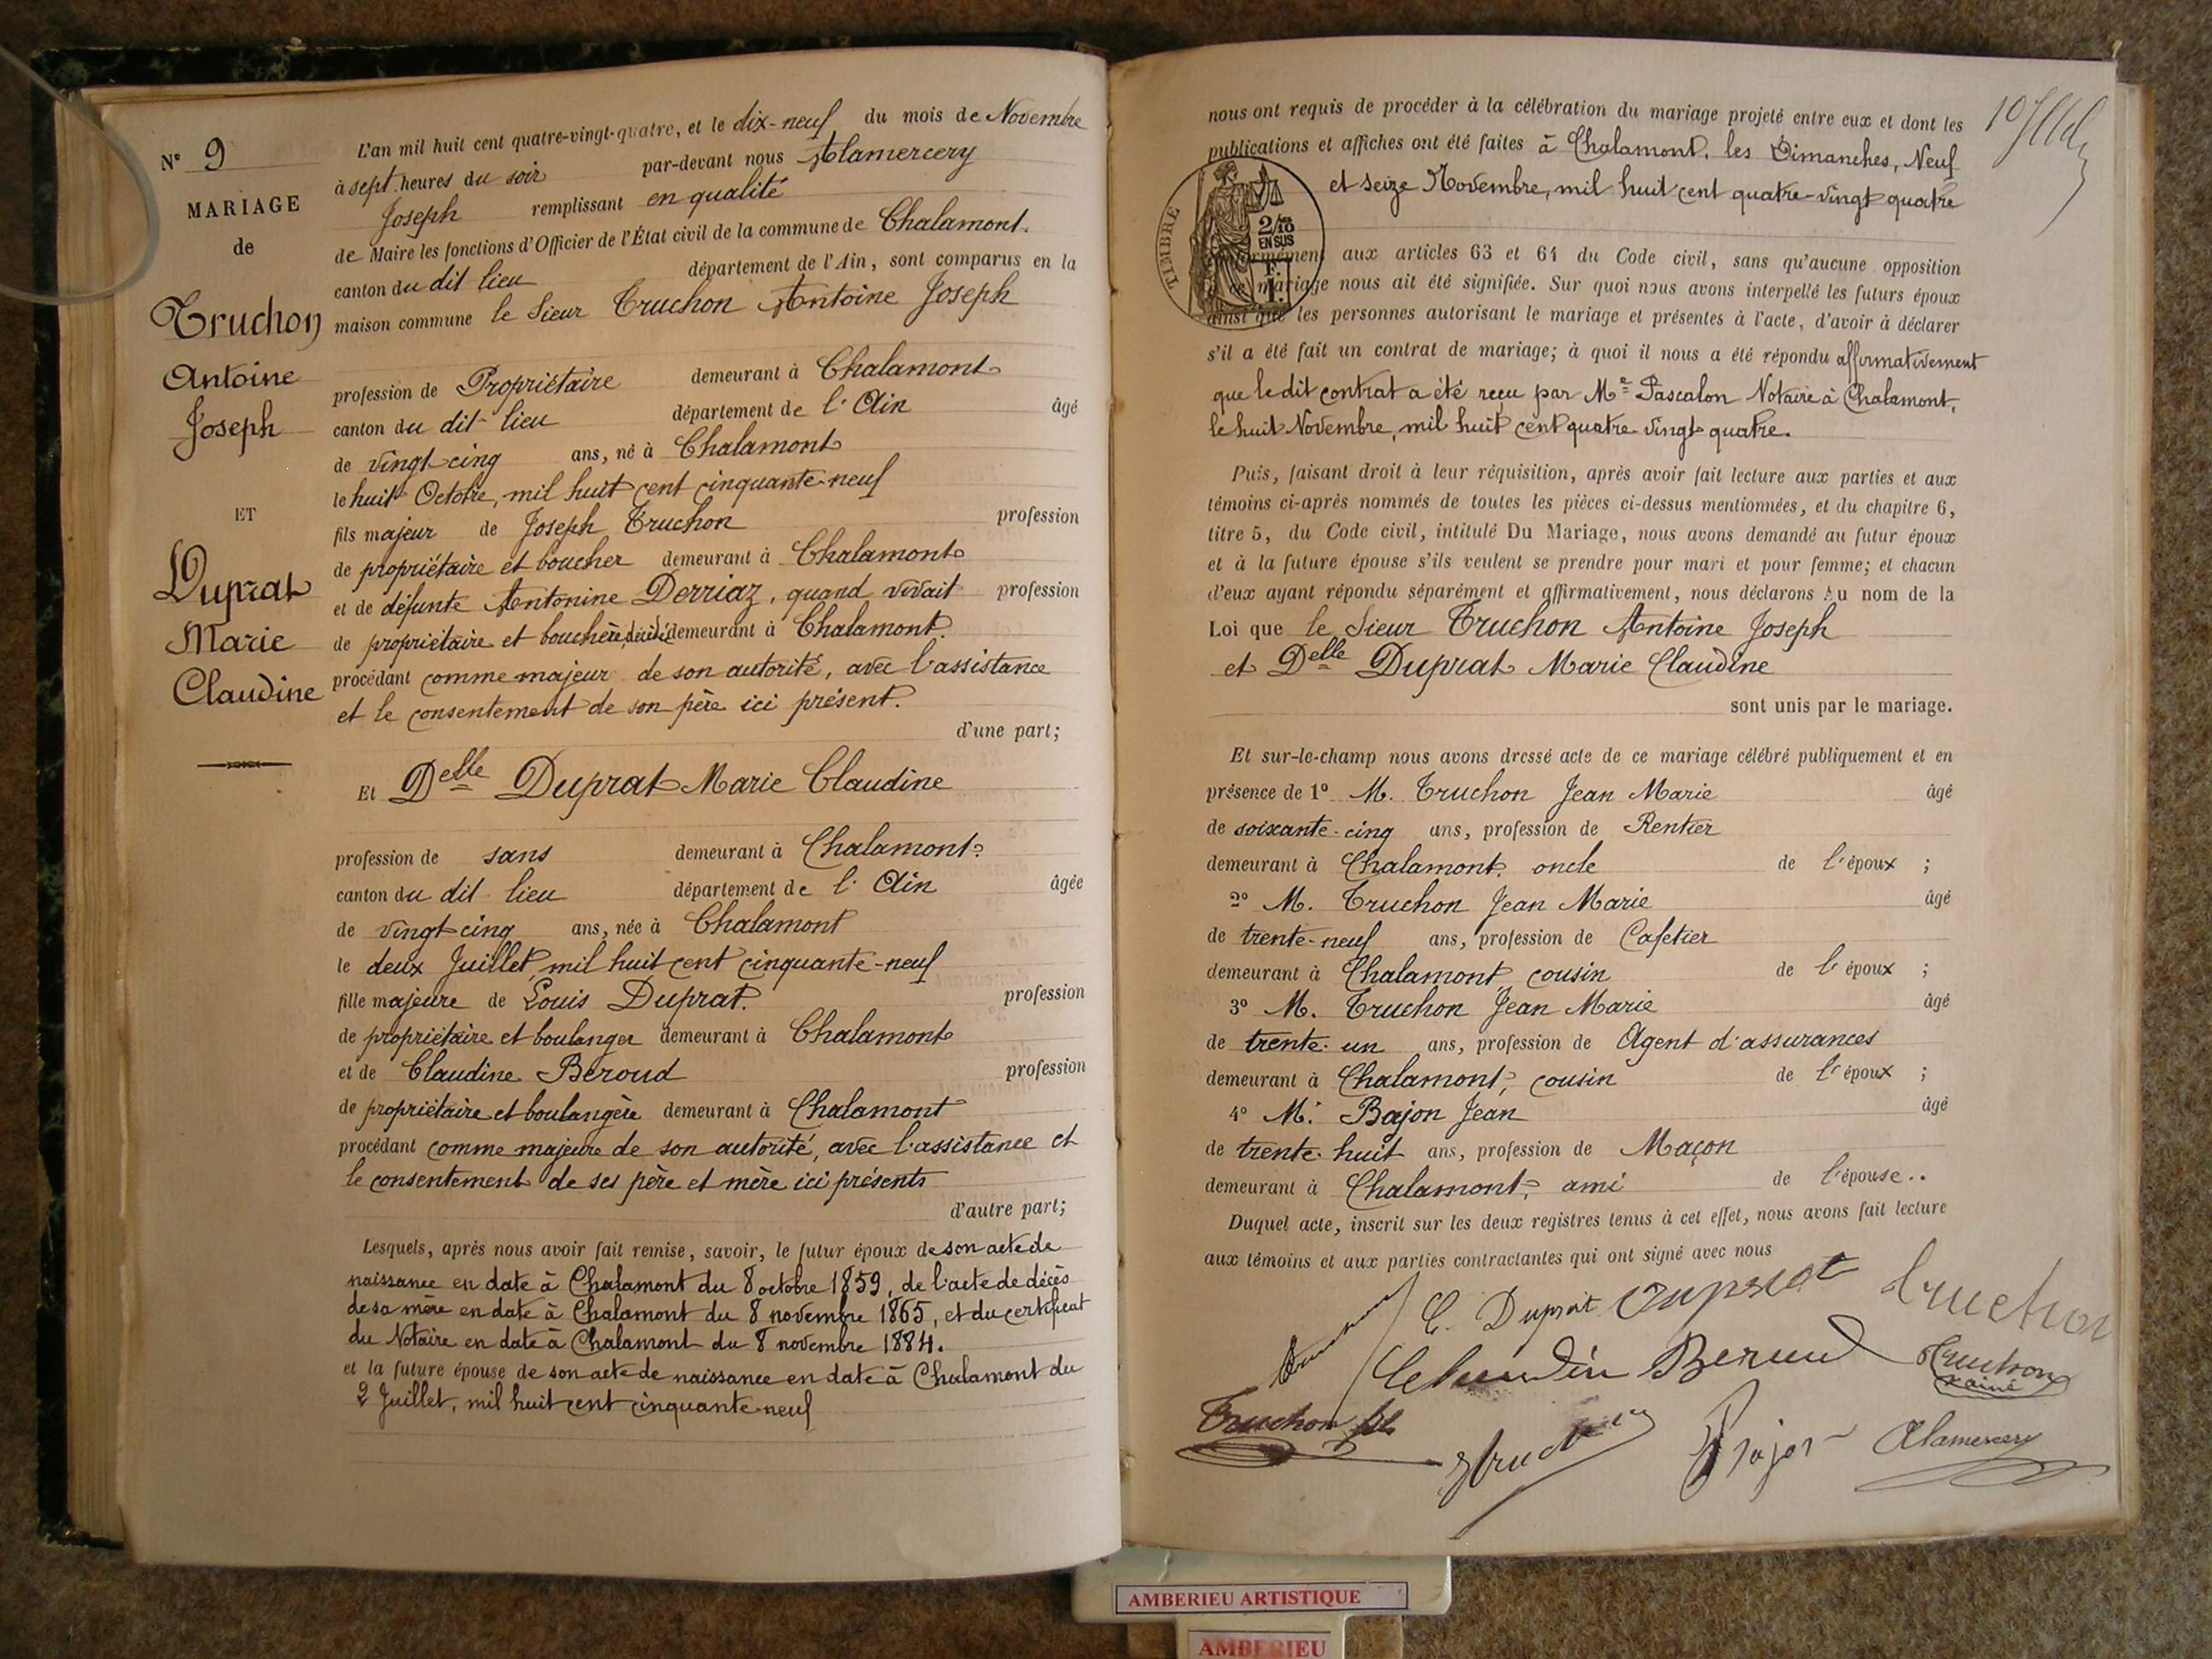 N° 9
MARIAGE
de
Truchon
Antoine
Joseph
ET
Duprat
Marie
Claudine
L'an mil huit cent quatre-vingt-quatre, et le dix-neuf du mois de Novembre
à sept heures du soir par-devant nous Alamercery
Joseph remplissant en qualité
de Maire les fonctions d'Officier de l'État civil de la commune de Chalamont.
canton du dit lieu département de l'Ain, sont comparus en la
maison commune le Sieur Truchon Antoine Joseph
profession de Propriétaire demeurant à Chalamont
canton du dit-lieu département de l'Ain âgé
de vingt-cinq ans, né à Chalamont
le huit Octobre, mil huit cent cinquante-neuf
fils majeur de Joseph Truchon profession
de propriétaire et boucher demeurant à Chalamont
et de défunte Antonine Derriaz, quand vivait profession
de propriétaire et bouchère, décédée demeurant à Chalamont.
procédant comme majeur de son autorité, avec l'assistance
et le consentement de son père ici présent.
d'une part;
Et Delle Duprat Marie Claudine
profession de sans demeurant à Chalamont
canton du dit lieu département de l'Ain âgée
de vingt-cinq ans, née à Chalamont
le deux Juillet, mil huit cent cinquante-neuf
fille majeure de Louis Duprat. profession
de propriétaire et boulanger demeurant à Chalamont
et de Claudine Beroud profession
de propriétaire et boulangère demeurant à Chalamont
procédant comme majeure de son autorité, avec l'assistance et
le consentement de ses père et mère ici présents
d'autre part;
Lesquels, après nous avoir fait remise, savoir, le futur époux de son acte de
naissance en date à Chalamont du 8 octobre 1859, de l'acte de décès
de sa mère en date à Chalamont du 8 novembre 1865, et du certificat
du Notaire en date à Chalamont du 8 novembre 1884.
et la future épouse de son acte de naissance en date à Chalamont du
2 Juillet, mil huit cent cinquante-neuf
nous ont requis de procéder à la célébration du mariage projeté entre eux et dont les
publications et affiches ont été faites à Chalamont, les Dimanches, Neuf
et seize Novembre, mil huit cent quatre-vingt quatre
TIMBRE
2/10
EN SUS
aux articles 63 et 64 du Code civil, sans qu'aucune opposition
mariage nous ait été signifiée. Sur quoi nous avons interpellé les futurs époux
ainsi que les personnes autorisant le mariage et présentes à l'acte, d'avoir à déclarer
s'il a été fait un contrat de mariage; à quoi il nous a été répondu affirmativement
que le dit contrat a été reçu par Me Pascalon Notaire à Chalamont,
le huit Novembre, mil huit cent quatre vingt quatre.
Puis, faisant droit à leur réquisition, après avoir fait lecture aux parties et aux
témoins ci-après nommés de toutes les pièces ci-dessus mentionnées, et du chapitre 6,
titre 5, du Code civil, intitulé Du Mariage, nous avons demandé au futur époux
et à la future épouse s'ils veulent se prendre pour mari et pour femme; et chacun
d'eux ayant répondu séparément et affirmativement, nous déclarons Au nom de la
Loi que le Sieur Truchon Antoine Joseph
et Delle Duprat Marie Claudine
sont unis par le mariage.
Et sur-le-champ nous avons dressé acte de ce mariage célébré publiquement et en
présence de 1° M. Truchon Jean Marie âgé
de soixante-cinq ans, profession de Rentier
demeurant à Chalamont, oncle de l'époux ;
2° M. Truchon Jean Marie âgé
de trente-neuf ans, profession de Cafetier
demeurant à Chalamont cousin de l'époux ;
3° M. Truchon Jean Marie âgé
de trente-un ans, profession de Agent d'assurances
demeurant à Chalamont, cousin de l'époux ;
4° M. Bajon Jean âgé
de trente-huit ans, profession de Maçon
demeurant à Chalamont, ami de l'épouse..
Duquel acte, inscrit sur les deux registres tenus à cet effet, nous avons fait lecture
aux témoins et aux parties contractantes qui ont signé avec nous
C. Duprat Duprat Truchon
Beroud Truchon
ainé
Truchon fils
Bajon Alamercery
AMBERIEU ARTISTIQUE
AMBERIEU